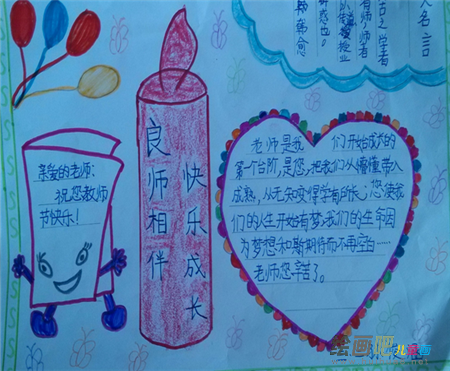 名言
之学者
有师。师者
惑也。
韩愈
亲爱的老师:
祝您教师
节快乐!
良师相伴
快乐成长
老师是我 们开始成长的
第一个台阶,是您,把我们从懵懂带入
成熟,从无知变得学有所长;您使我
们的人生开始有梦;我们的生命因
为梦想和期待而不再空白……
老师您辛苦了。
绘画吧